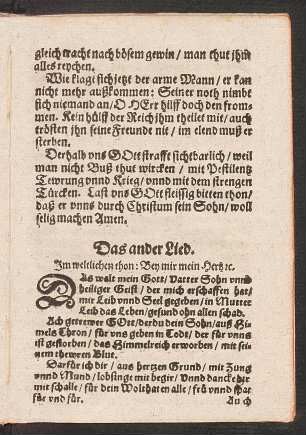 gleich tracht nach bösem gewin / man thut jhm
alles reychen.
Wie klagt sich jetzt der arme Mann / er kan
nicht mehr außkommen: Seiner noth nimbt
sich niemand an / O HErr hilff doch den from-
men. Kein hülff der Reich jhm theilet mit / auch
trösten jhn seine Freunde nit / im elend muß er
sterben.
Derhalb vns GOtt strafft sichtbarlich / weil
man nicht Buß thut wircken / mit Pestilentz
Tewrung vnnd Krieg / vnnd mit dem strengen
Türcken. Last vns GOtt fleissig bitten thon /
daß er vnns durch Christum sein Sohn / woll
selig machen Amen.
Das ander Lied.
Im weltlichen thon: Bey mir mein Hertz ꝛc.
DAs walt mein Gott / Vatter Sohn vnnd
heiliger Geist / der mich erschaffen hat /
mir Leib vnnd Seel gegeben / in Mutter
Leib das Leben / gesund ohn allen schad.
Ach getrewer GOtt / der du dein Sohn / auß Him-
mels Thron / für vns geben in Todt / der für vnns
ist gestorben / das Himmelreich erworben / mit sei-
nem thewren Blut.
Darfür ich dir / aus hertzen Grund / mit Zung
vnnd Mund / lobsinge mit begir / vnnd dancke dir
mit schalle / für dein Wolthaten alle / frü vnnd spat
für vnd für.
Auch